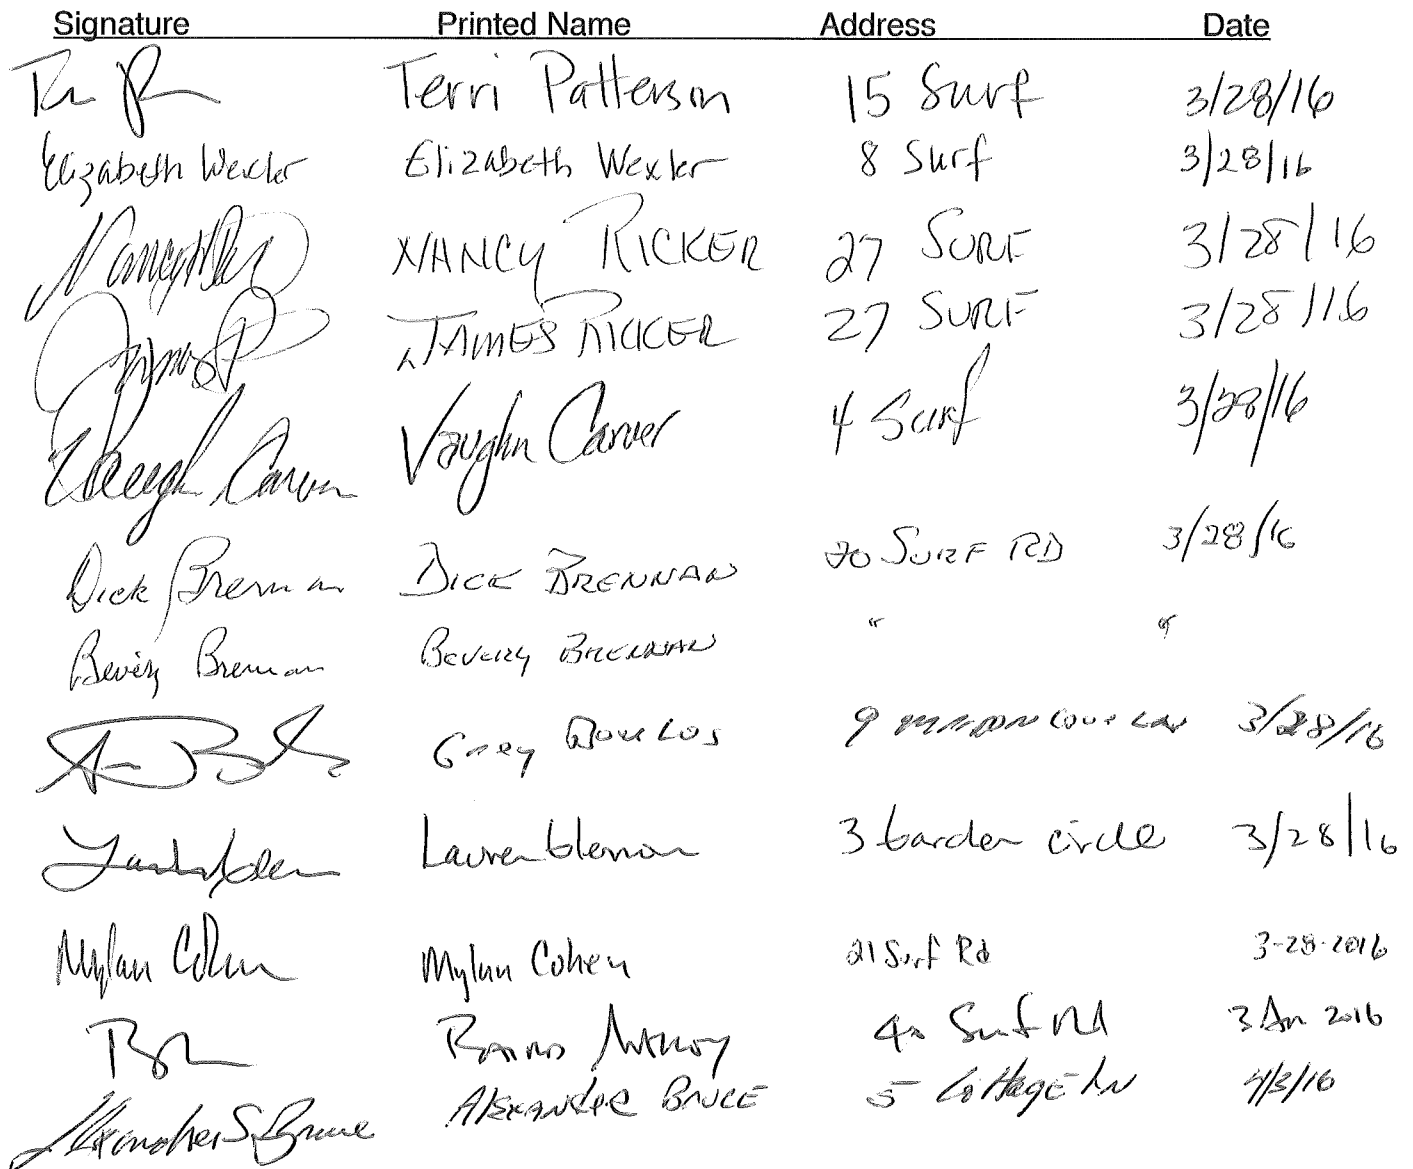 Signature Printed Name Address Date
Terri Patterson 15 Surf 3/28/16
Elizabeth Wexler Elizabeth Wexler 8 Surf 3/28/16
Nancy NANCY RICKER 27 SURF 3/28/16
James JAMES RICKER 27 SURF 3/28/16
Vaughn Carver Vaughn Carver 4 Surf 3/28/16
Dick Brennan DICK BRENNAN 20 SURF RD 3/28/16
Beverly Brennan BEVERLY BRENNAN " "
Greg 9 3/28/16
Lauren 3 Garden circle 3/28/16
Mylan Cohen Mylan Cohen 21 Surf Rd 3-28-2016
Surf Rd 2016
Alexander S Bruce ALEXANDER BRUCE 5 Cottage Ln 4/3/16